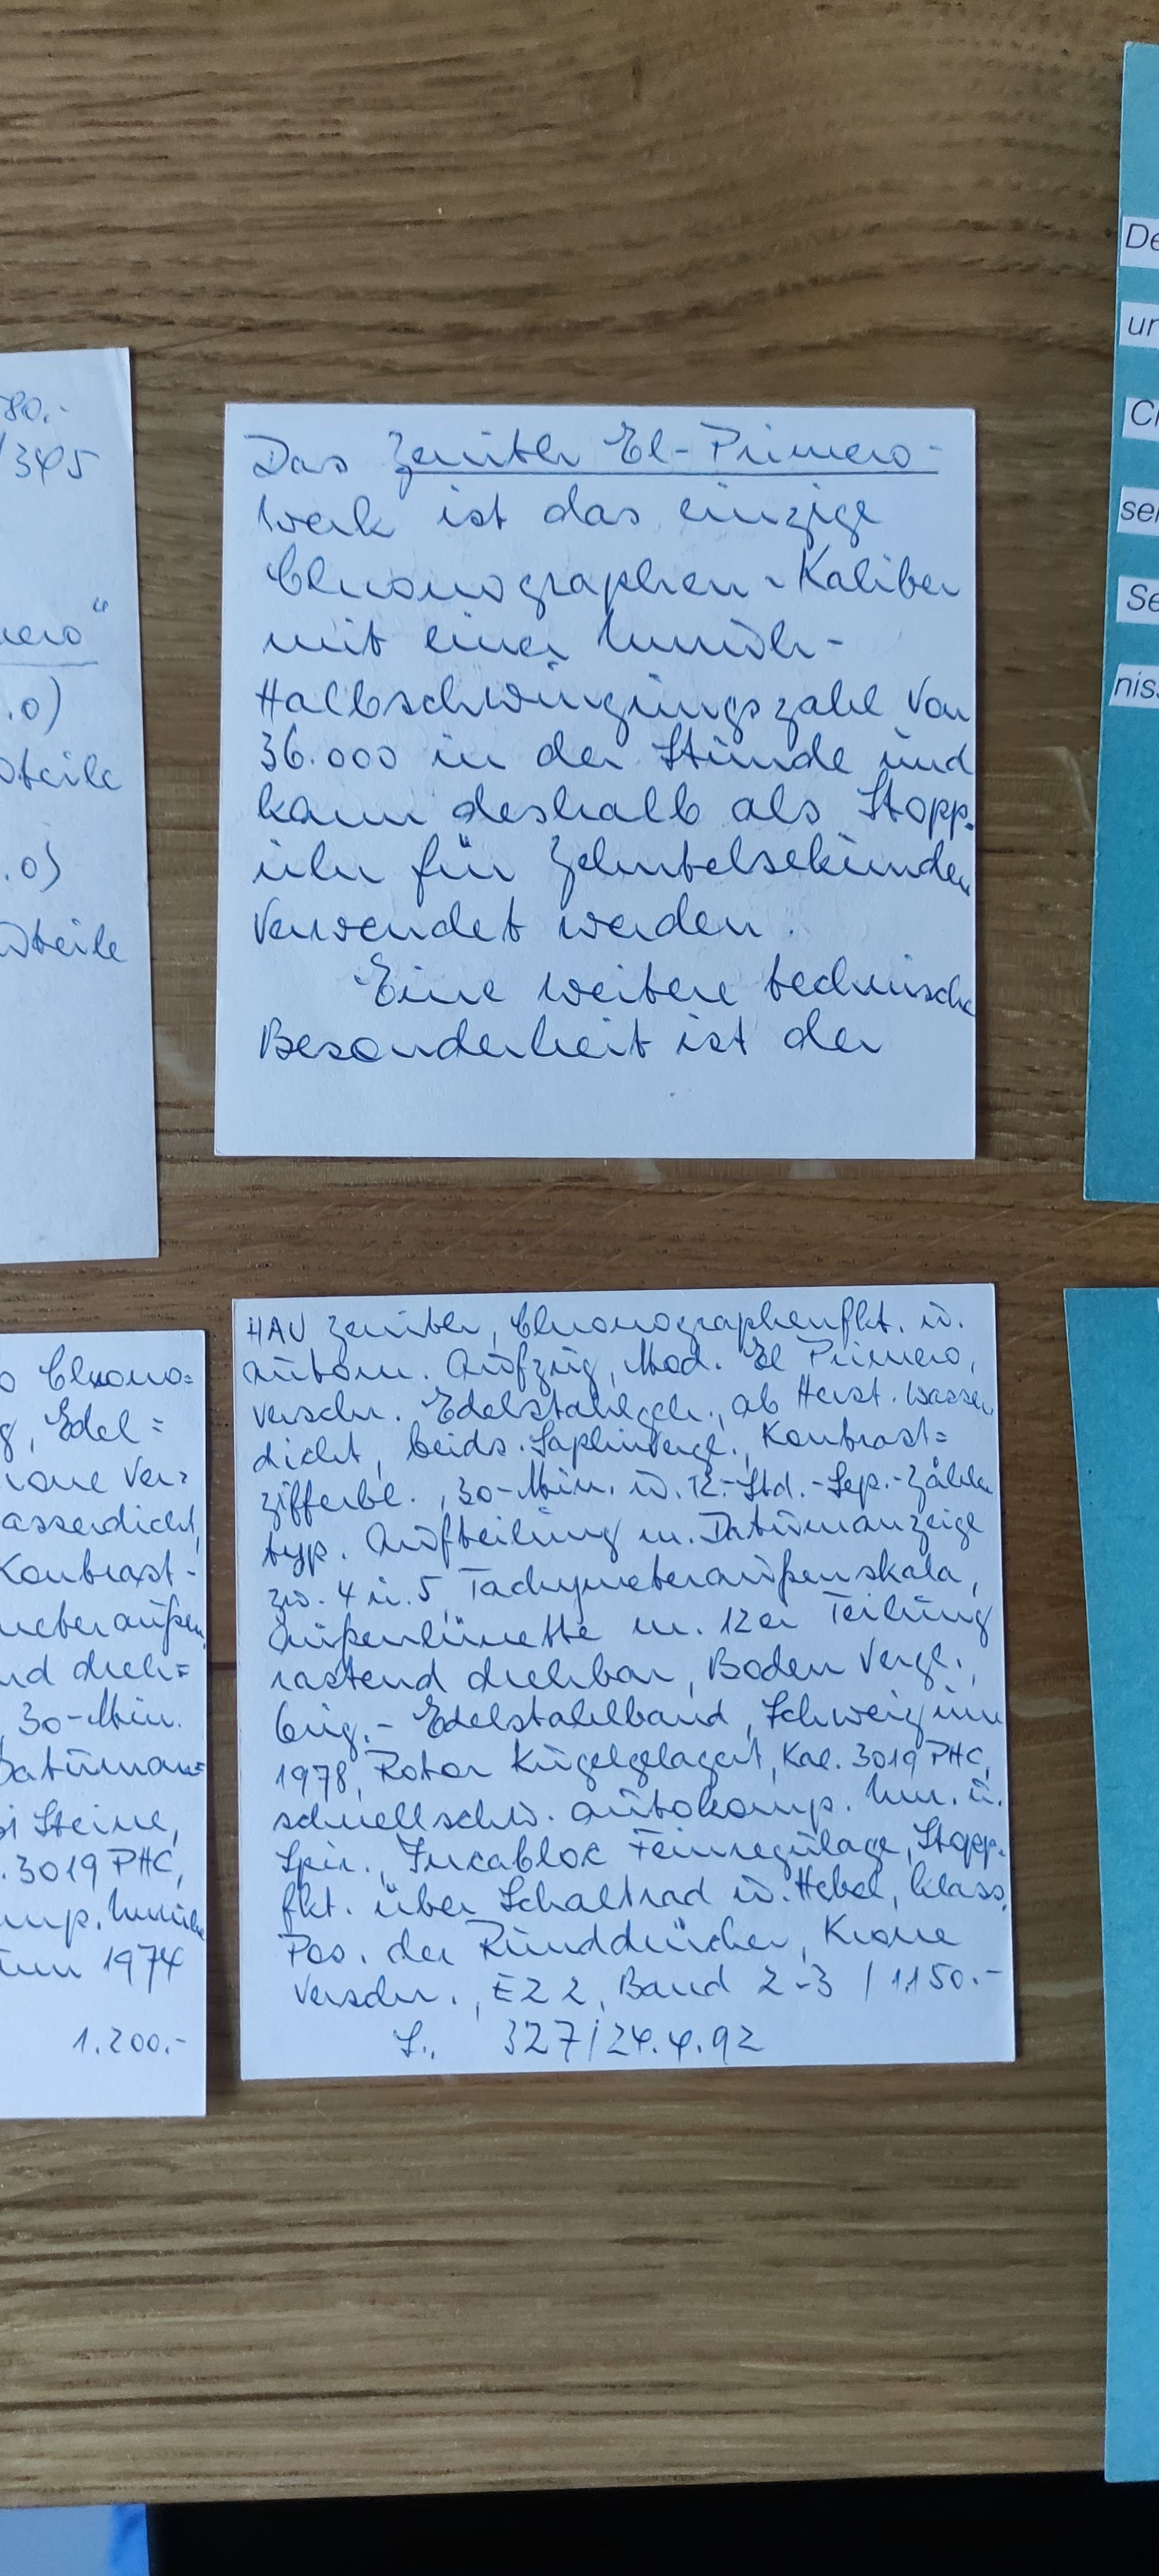 80.-
/345
nero"
.0)
dteile
.0)
dteile
Das Zenith El-Primero-
Werk ist das einzige
Chronographen-Kaliber
mit einer Unruh-
Halbschwingungszahl von
36.000 in der Stunde und
kann deshalb als Stopp-
uhr für Zehntelsekunden
verwendet werden.
Eine weitere technische
Besonderheit ist der
De
un
Ch
sei
Se
niss
o Chrono=
g, Edel=
rone ver=
asserdicht,
Kontrast-
meteraußen
nd dreh=
30-Min.
Datuman=
31 Steine,
. 3019 PHC,
mp. Unruh
um 1974
1.200.-
HAU Zenith, Chronographenfkt. u.
autom. Aufzug, Mod. El Primero,
verschr. Edelstahlgeh., ab Herst. wasser
dicht, beids. Saphirvergl., Kontrast=
zifferbl., 30-Min. u. 12-Std.-Sep.-Zähler
typ. Aufteilung m. Datumanzeige
zw. 4 u. 5, Tachymeteraußenskala,
Außenlünette m. 12er Teilung
rastend drehbar, Boden vergl.,
Orig.- Edelstahlband, Schweiz um
1978, Rotor kugelgelagert, Kal. 3019 PHC,
schnellschw. autokomp. Unr. u.
Spir., Incabloc Feinregulage, Stopp-
fkt. über Schaltrad u. Hebel, klass.
Pos. der Runddrücker, Krone
verschr., EZ 2, Band 2-3 / 1150.-
S., 327/24.4.92